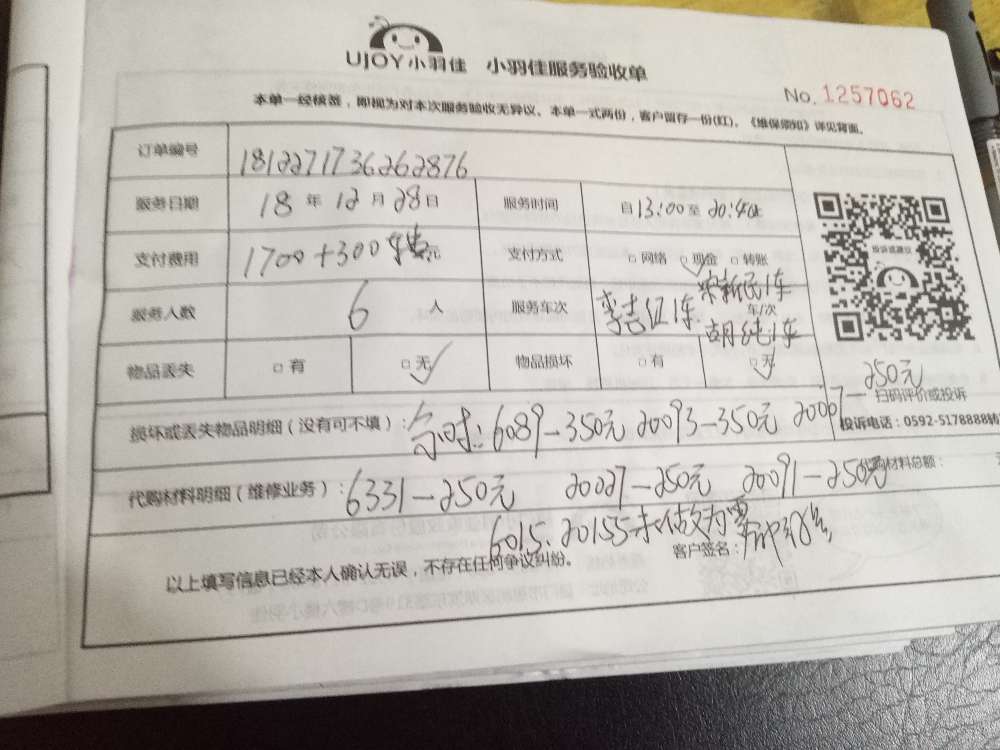 UJOY小羽佳 小羽佳服务验收单
No. 1257062
本单一经核签，即视为对本次服务验收无异议、本单一式两份，客户留存一份(红)，《维保须知》详见背面。
订单编号 1812271736262876
服务日期 18 年 12 月 28 日 服务时间 自 13:00 至 20:40止
投诉或建议
支付费用 1700+300 元 支付方式 □ 网络 □ 现金 □ 转账
服务人数 6 人 服务车次 李吉红1车 宋新民1车 车/次 胡纯1车
物品丢失 □ 有 □ 无 物品损坏 □ 有 □ 无
扫码评价或投诉
投诉电话：0592-5178888转
损坏或丢失物品明细（没有可不填）： 6089-350元 20093-350元 20067-250元
代购材料明细（维修业务）：6331-250元 20027-250元 20091-250元 代购材料总额：
6015、20155未做
以上填写信息已经本人确认无误，不存在任何争议纠纷。 客户签名：